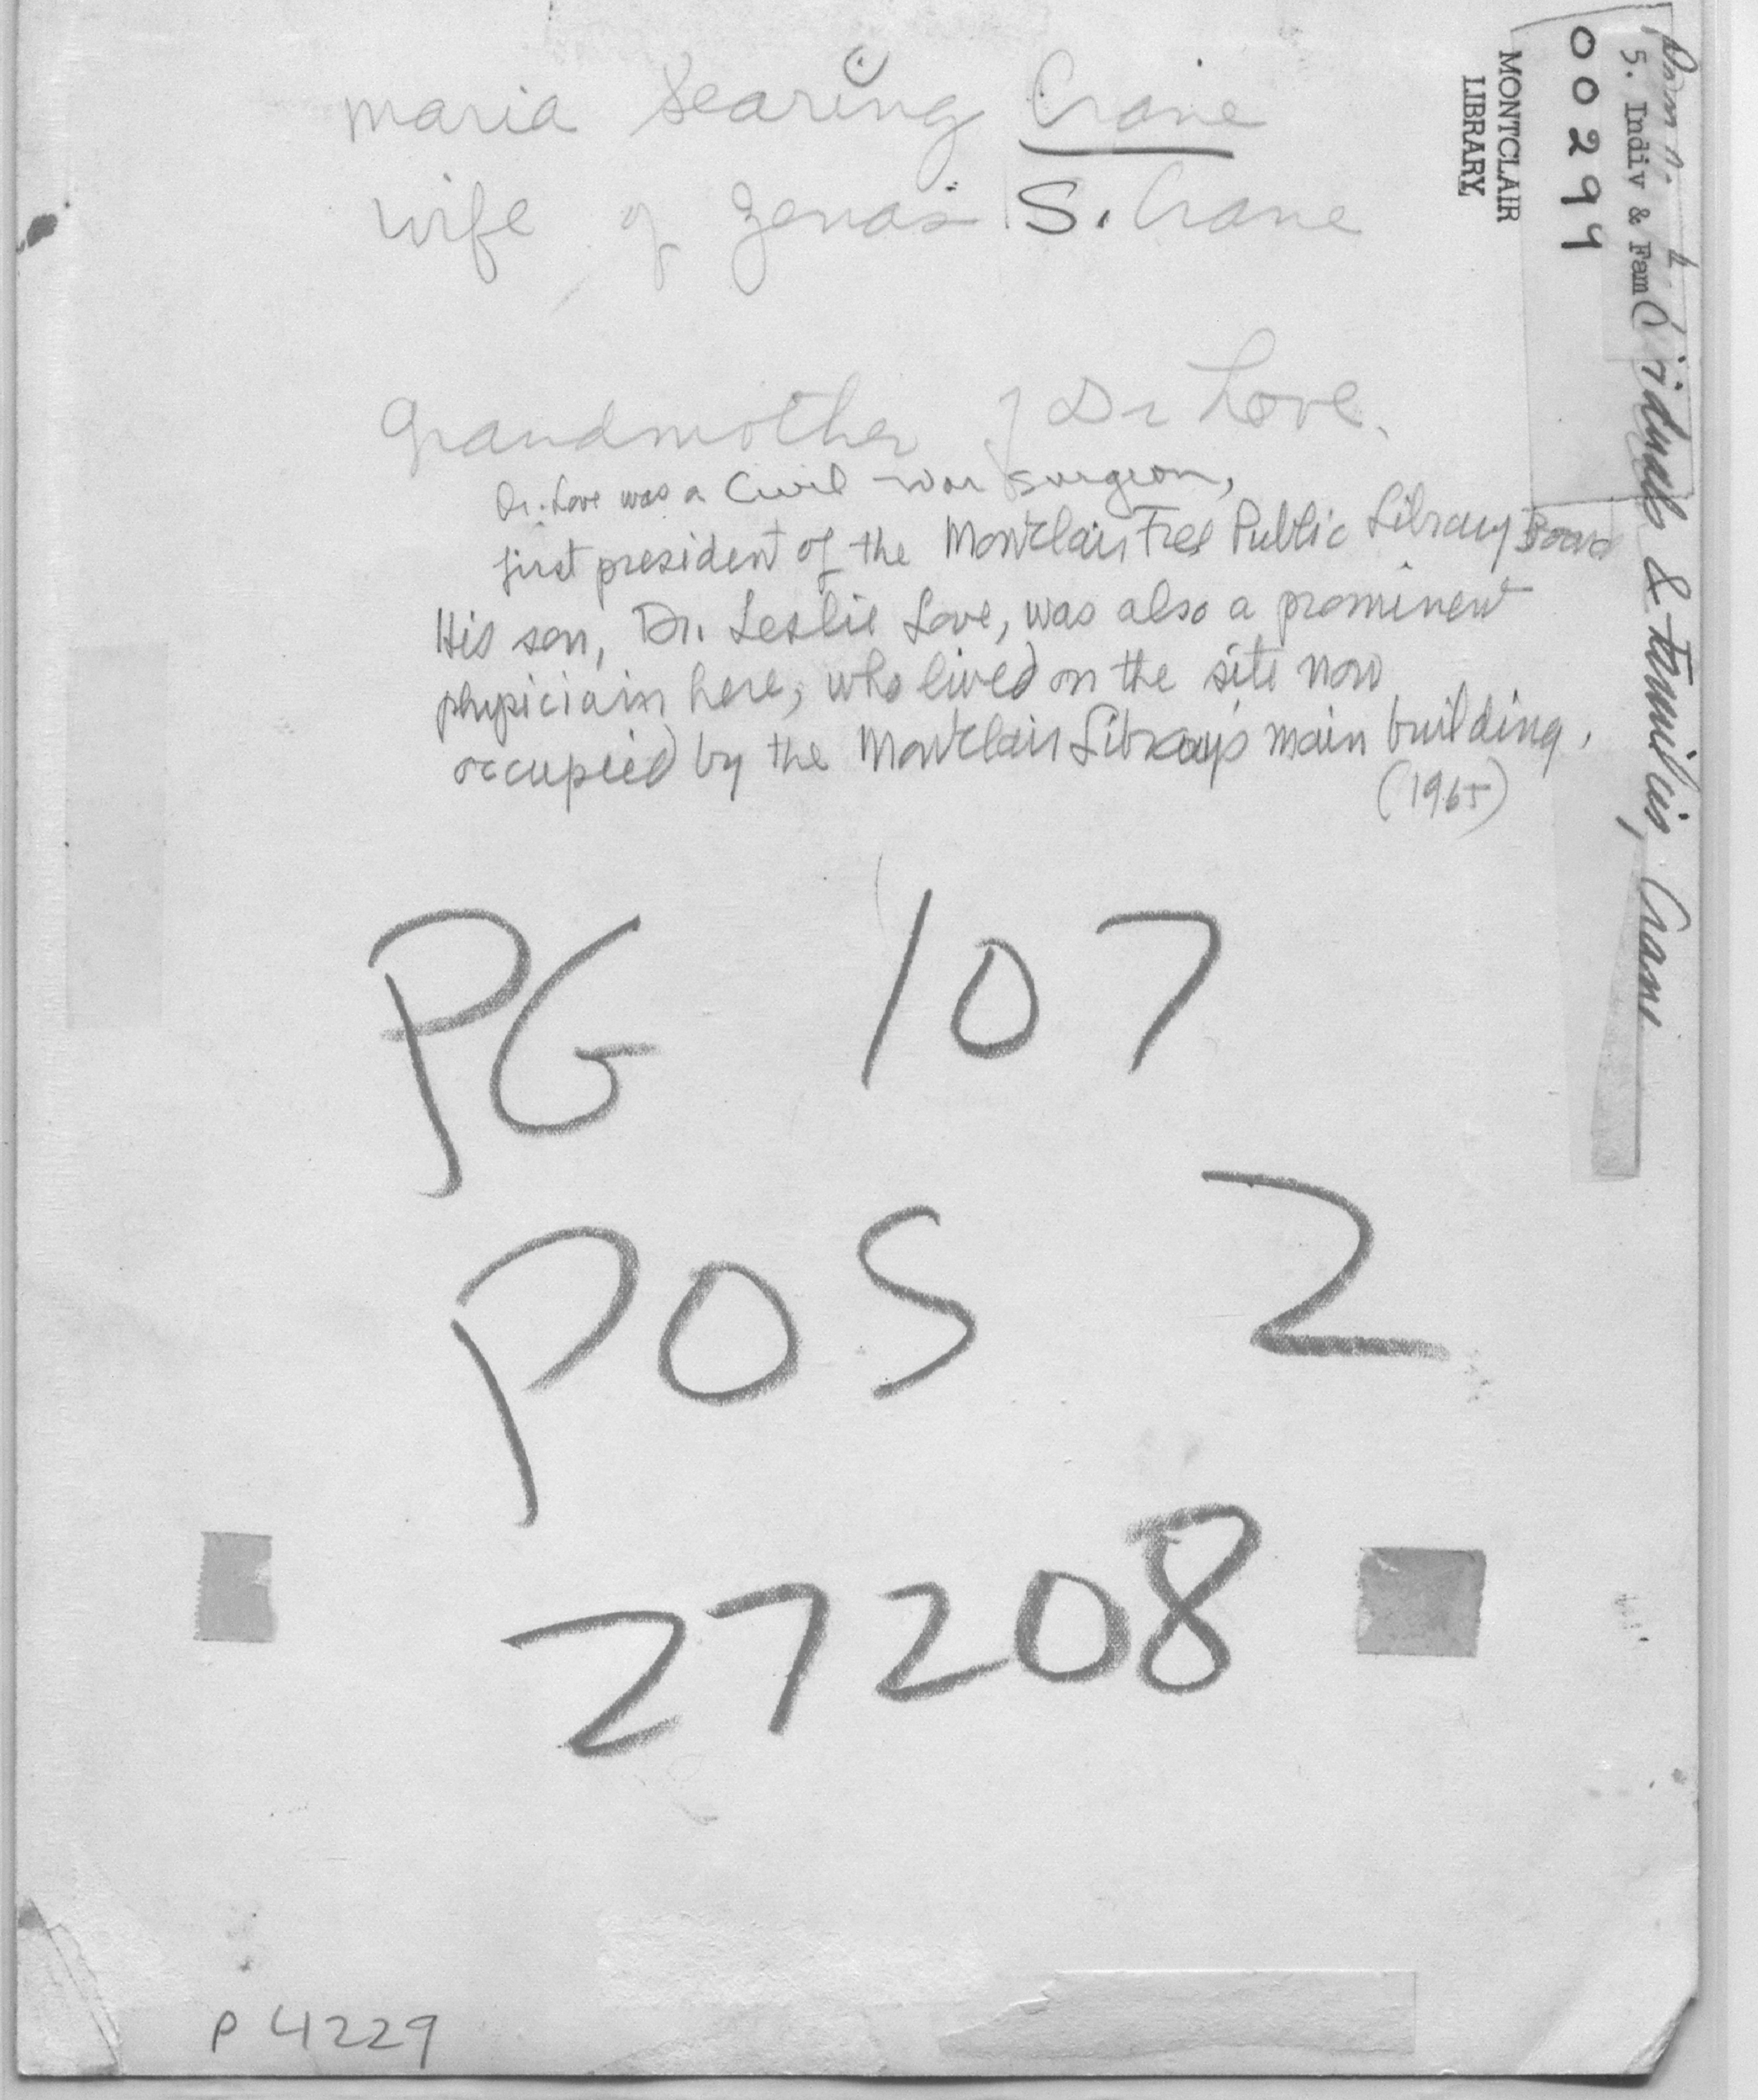 Maria Searing Crane
wife of Zenas S. Crane
Grandmother of Dr Love.
Dr. Love was a Civil war surgeon,
first president of the Montclair Free Public Library Board
His son, Dr. Leslie Love, was also a prominent
physician here, who lived on the site now
occupied by the Montclair Library's main building.
(1965)
PG 107
POS 2
27208
P 4229
MONTCLAIR
LIBRARY
00299
5. Indiv & Fam
& Families, Crane